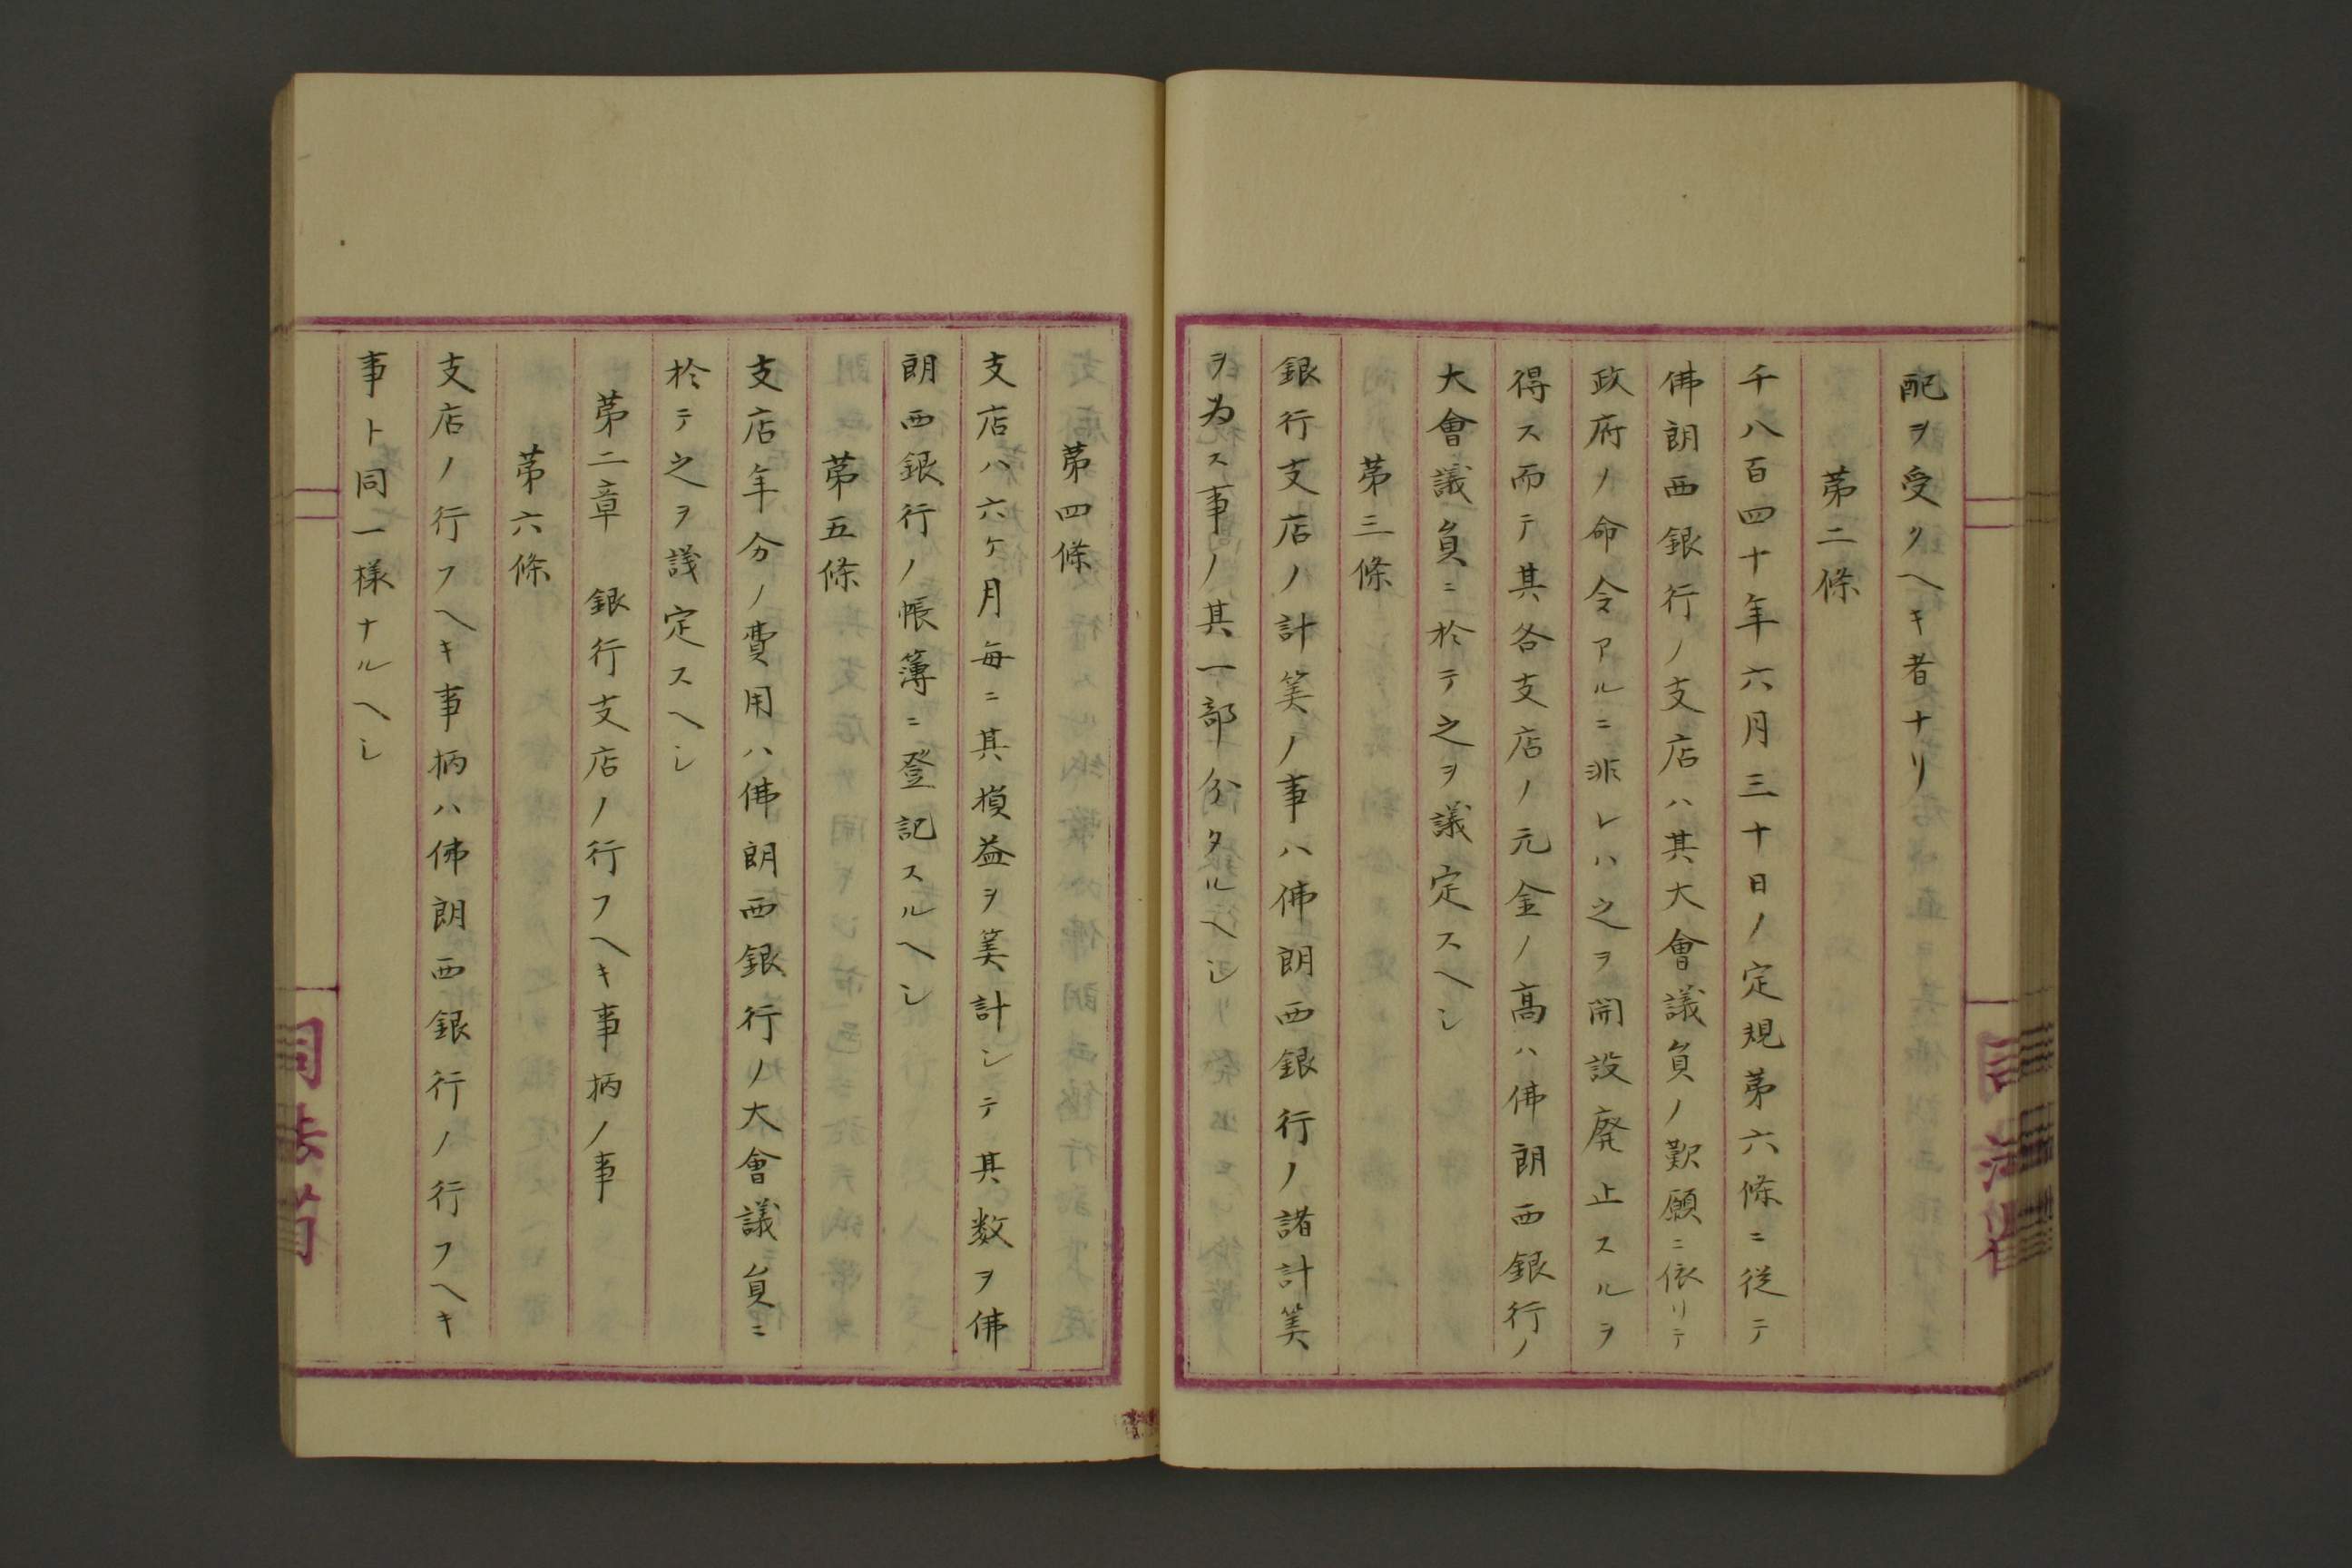 配ヲ受クヘキ者ナリ
第二條
千八百四十年六月三十日ノ定規第六條ニ從テ
佛朗西銀行ノ支店ハ其大會議負ノ歎願ニ依リテ
政府ノ命令アルニ非レハ之ヲ開設廃止スルヲ
得ス而テ其各支店ノ元金ノ高ハ佛朗西銀行ノ
大會議負ニ於テ之ヲ議定スヘシ
第三條
銀行支店ノ計筭ノ事ハ佛朗西銀行ノ諸計筭
ヲ為ス事ノ其一部分タルヘシ
第四條
支店ハ六ケ月毎ニ其損益ヲ筭計シテ其数ヲ佛
朗西銀行ノ帳簿ニ登記スルヘシ
第五條
支店年分ノ費用ハ佛朗西銀行ノ大會議負ニ
於テ之ヲ議定スヘシ
第二章 銀行支店ノ行フヘキ事柄ノ事
第六條
支店ノ行フヘキ事柄ハ佛朗西銀行ノ行フヘキ
事ト同一様ナルヘシ